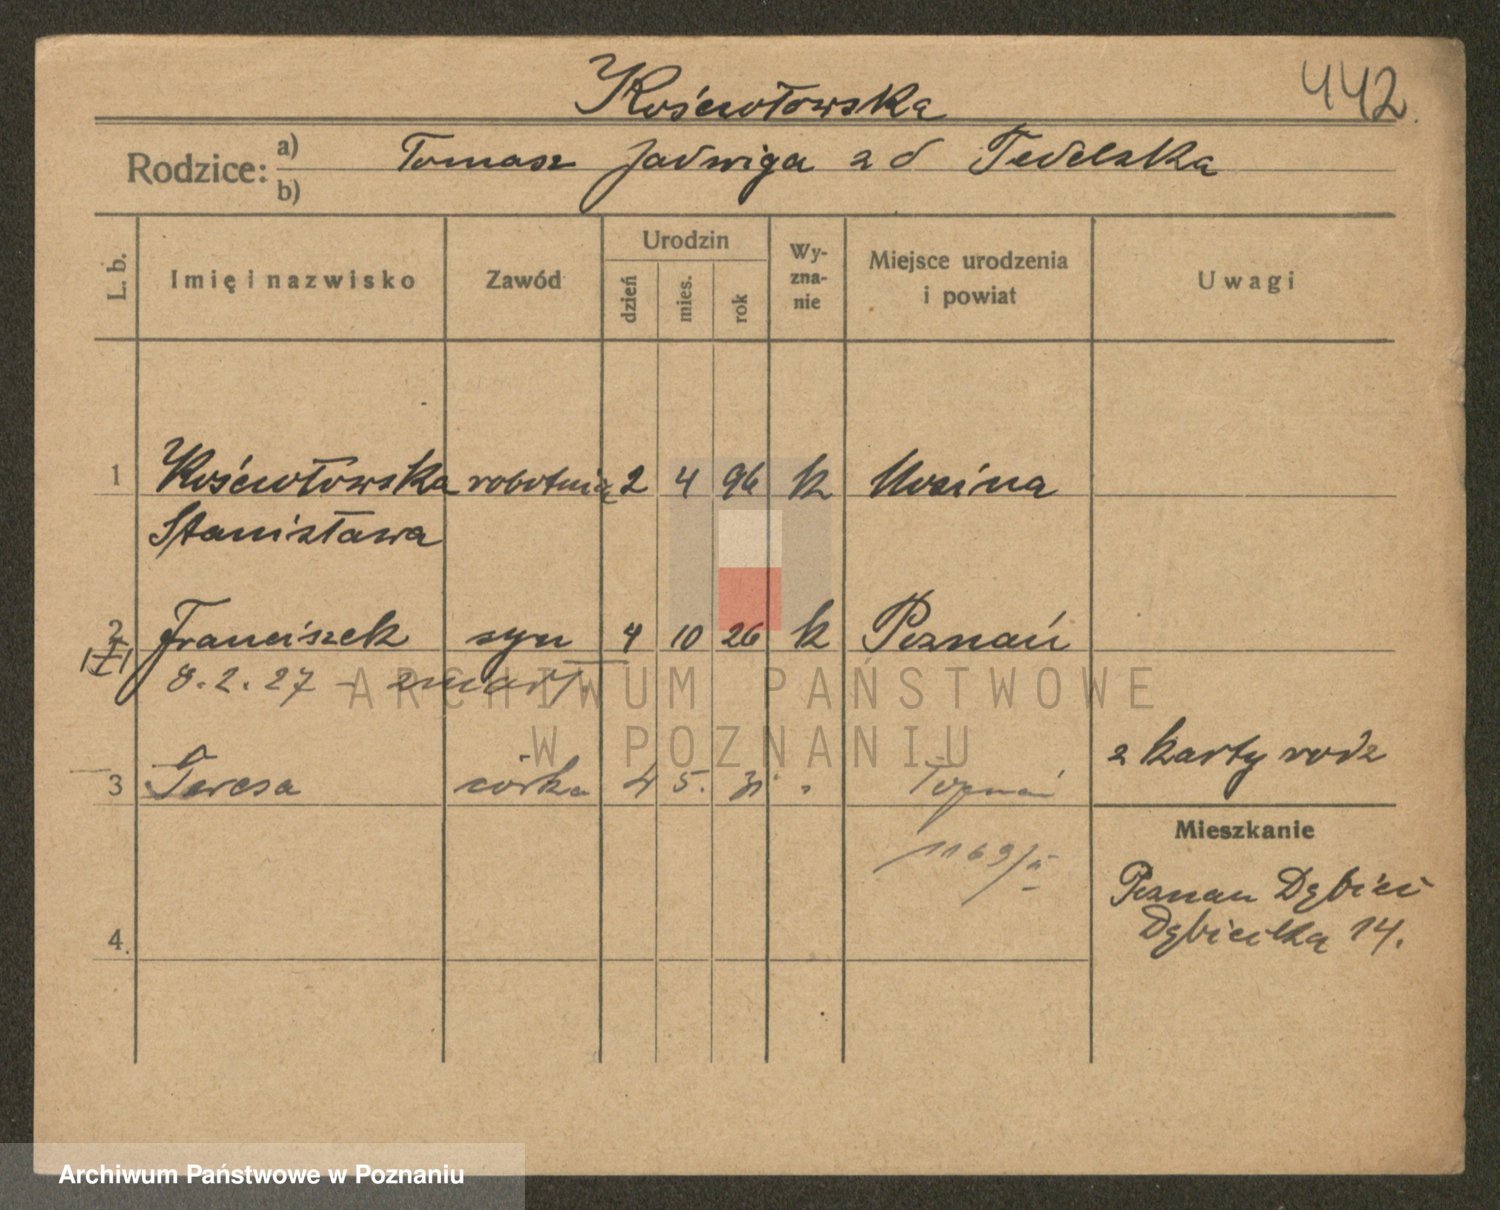 Kościołowska
442
Rodzice: a) Tomasz Jadwiga z d
b)
L. b. Imię i nazwisko Zawód Urodzin dzień mies. rok Wy-zna-nie Miejsce urodzenia i powiat Uwagi
1 Kościołowska robotnica 2 4 96 k Mosina
Stanisława
2 Franciszek syn 4 10 26 k Poznań
8.2.27 – zmarł.
z karty rodz
3 Teresa córka 4 5. 31 "
Mieszkanie
Poznań Dębiec
Dębiecka 14.
4.
ARCHIWUM PAŃSTWOWE
W POZNANIU
Archiwum Państwowe w Poznaniu